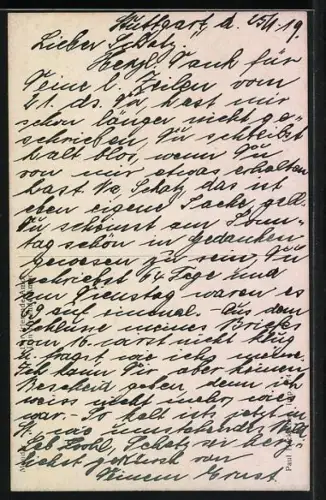 Stuttgart, d. 25/1.19.
Lieber Schatz.
Herzl. Dank für
Deine l. Zeilen vom
21. ds. Ja, hast mir
schon länger nicht ge-
schrieben, Du schreibst
halt blos, wenn Du
von mir etwas erhalten
hast. Na Schatz das ist
eben eigene Sache, gell.
Du scheinst am Sonn-
tag schön in Gedanken
gewesen zu sein, Du
schriebst 64 Tage und
am Dienstag waren es
59 auf einmal. - Aus dem
Schlusse meines Briefes
vom 16. warst nicht klug
u. fragst wie ichs meine.
Ich kann Dir aber keinen
Bescheid geben, denn ich
weiss nicht mehr, wie's
war. - So kalt ists jetzt in
St. wie umstehendes Bild.
Leb wohl, Schatz sei herz-
lichst geküsst von
Deinem Ernst